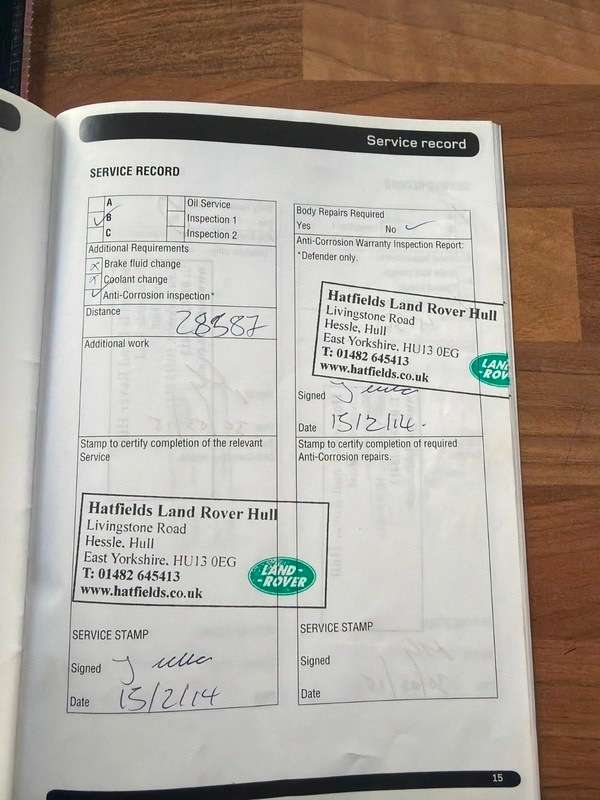 Service record
SERVICE RECORD
A
B
C
Oil Service
Inspection 1
Inspection 2
Additional Requirements
Brake fluid change
Coolant change
Anti-Corrosion inspection*
Distance
28587
Additional work
Stamp to certify completion of the relevant
Service
Hatfields Land Rover Hull
Livingstone Road
Hessle, Hull
East Yorkshire, HU13 0EG
T: 01482 645413
www.hatfields.co.uk
LAND-
-ROVER
SERVICE STAMP
Signed
Date 15/2/14
Body Repairs Required
Yes No
Anti-Corrosion Warranty Inspection Report:
*Defender only.
Hatfields Land Rover Hull
Livingstone Road
Hessle, Hull
East Yorkshire, HU13 0EG
T: 01482 645413
www.hatfields.co.uk
LAN
-ROV
Signed
Date 15/2/14.
Stamp to certify completion of required
Anti-Corrosion repairs.
SERVICE STAMP
Signed
Date
15